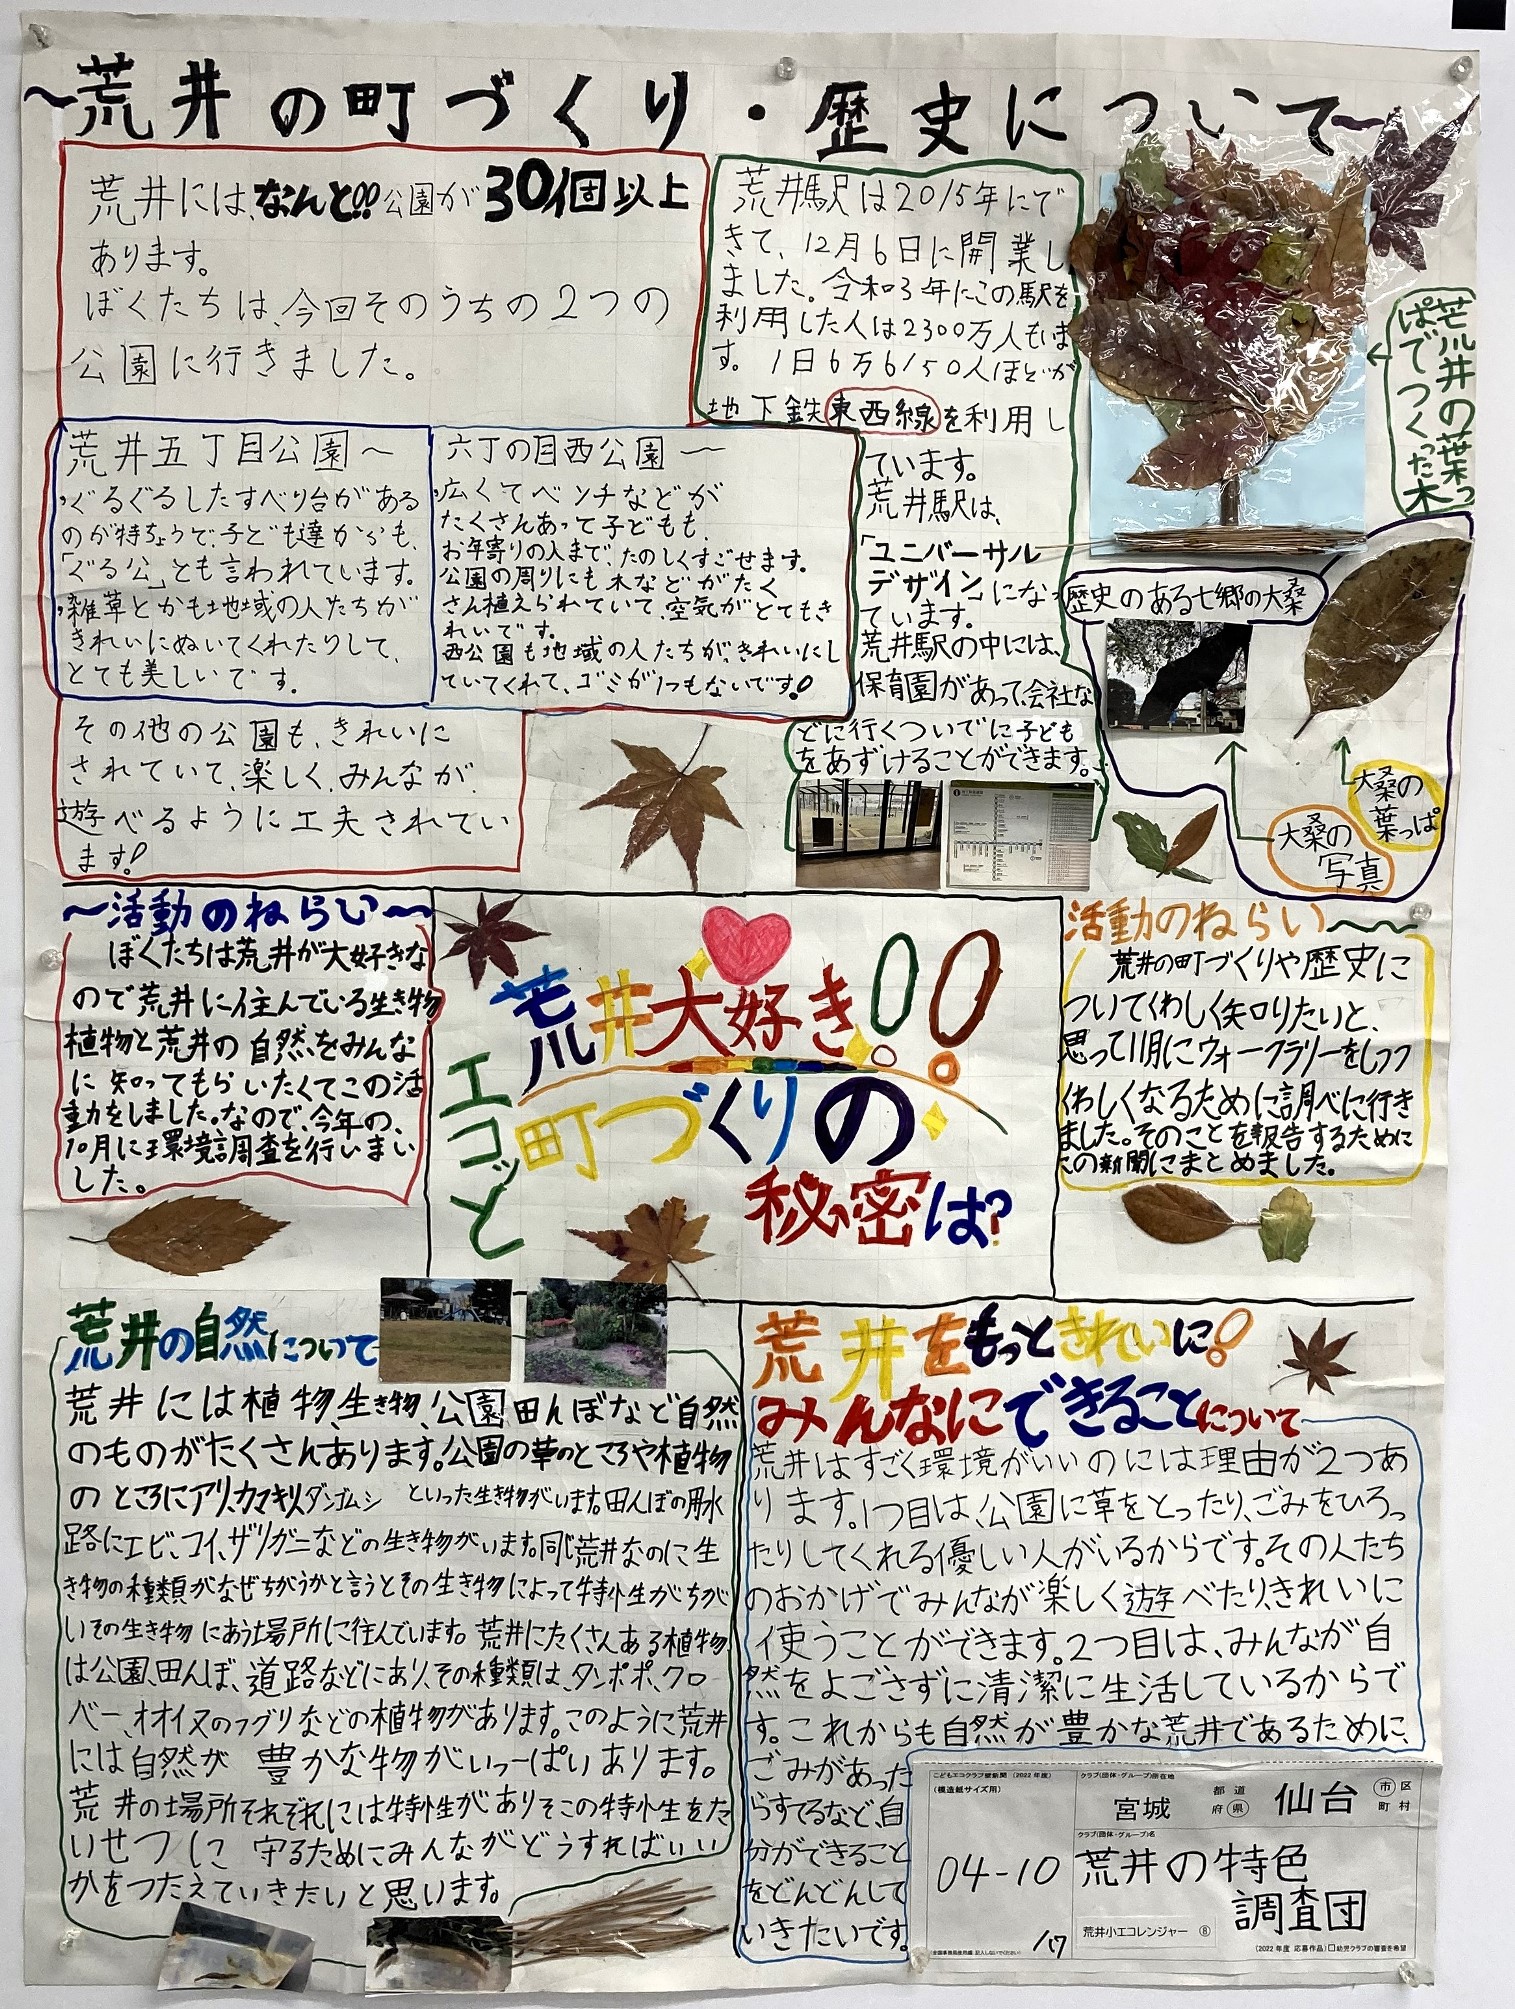 ～荒井の町づくり・歴史について～
荒井には、なんと!!公園が30個以上
あります。
ぼくたちは、今回そのうちの2つの
公園に行きました。
荒井五丁目公園～
・ぐるぐるしたすべり台がある
のが特ちょうで、子ども達からも、
「ぐる公」とも言われています。
・雑草とかも地域の人たちが
きれいにぬいてくれたりして、
とても美しいです。
六丁の目西公園～
・広くてベンチなどが
たくさんあって子どもも、
お年寄りの人まで、たのしくすごせます。
公園の周りにも木などがたく
さん植えられていて、空気がとてもき
れいです。
西公園も地域の人たちが、きれいにし
ていてくれて、ゴミが1つもないです!
その他の公園も、きれいに
されていて、楽しく、みんなが、
遊べるように工夫されてい
ます!
荒井駅は2015年にで
きて、12月6日に開業し
ました。令和3年にこの駅を
利用した人は2300万人もいま
す。1日6万6150人ほどが
地下鉄東西線を利用し
ています。
荒井駅は、
「ユニバーサル
デザイン」になっ
ています。
荒井駅の中には、
保育園があって、会社な
どに行くついでに子ども
をあずけることができます。
荒井の葉っ
ぱでつくった木
歴史のある七郷の大桑
大桑の
葉っぱ
大桑の
写真
～活動のねらい～
ぼくたちは荒井が大好きな
ので荒井に住んでいる生き物
植物と荒井の自然をみんな
に知ってもらいたくてこの活
動をしました。なので、今年の、
10月に環境調査を行いまい
した。
荒井大好き!!
エコッと
町づくりの
秘密は?
活動のねらい～
荒井の町づくりや歴史に
ついてくわしく知りたいと、
思って11月にウォークラリーをしつつ
くわしくなるために調べに行き
ました。そのことを報告するために
この新聞にまとめました。
荒井の自然について
荒井には植物、生き物、公園田んぼなど自然
のものがたくさんあります。公園の草のところや植物
のところにアリ、カマキリ、ダンゴムシ といった生き物がいます。田んぼの用水
路にエビ、コイ、ザリガニなどの生き物がいます。同じ荒井なのに生
き物の種類がなぜちがうかと言うとその生き物によって特性がちが
いその生き物にあう場所に住んでいます。荒井にたくさんある植物
は公園、田んぼ、道路などにあり、その種類は、タンポポ、クロ
ーバー、オオイヌのフグリなどの植物があります。このように荒井
には自然が 豊かな物がいっーぱいあります。
荒井の場所それぞれには特性がありその特性をた
いせつに 守るためにみんながどうすればいい
かをつたえていきたいと思います。
荒井をもっときれいに!
みんなにできることについて
荒井はすごく環境がいいのには理由が2つあ
ります。1つ目は、公園に草をとったり、ごみをひろっ
たりしてくれる優しい人がいるからです。その人たち
のおかげでみんなが楽しく遊べたり、きれいに
使うことができます。2つ目は、みんなが自
然をよごさずに清潔に生活しているからで
す。これからも自然が豊かな荒井であるために、
ごみがあった
らすてるなど、自
分ができること
をどんどんして
いきたいです。
こどもエコクラブ壁新聞（2022年度）
（模造紙サイズ用）
04-10
1/17
（全国事務局使用欄 記入しないでください）
クラブ(団体・グループ)所在地
宮城 都道府県 仙台 市区町村
クラブ(団体・グループ)名
荒井の特色
調査団
荒井小エコレンジャー ⑧
（2022年度 応募作品）□幼児クラブの審査を希望